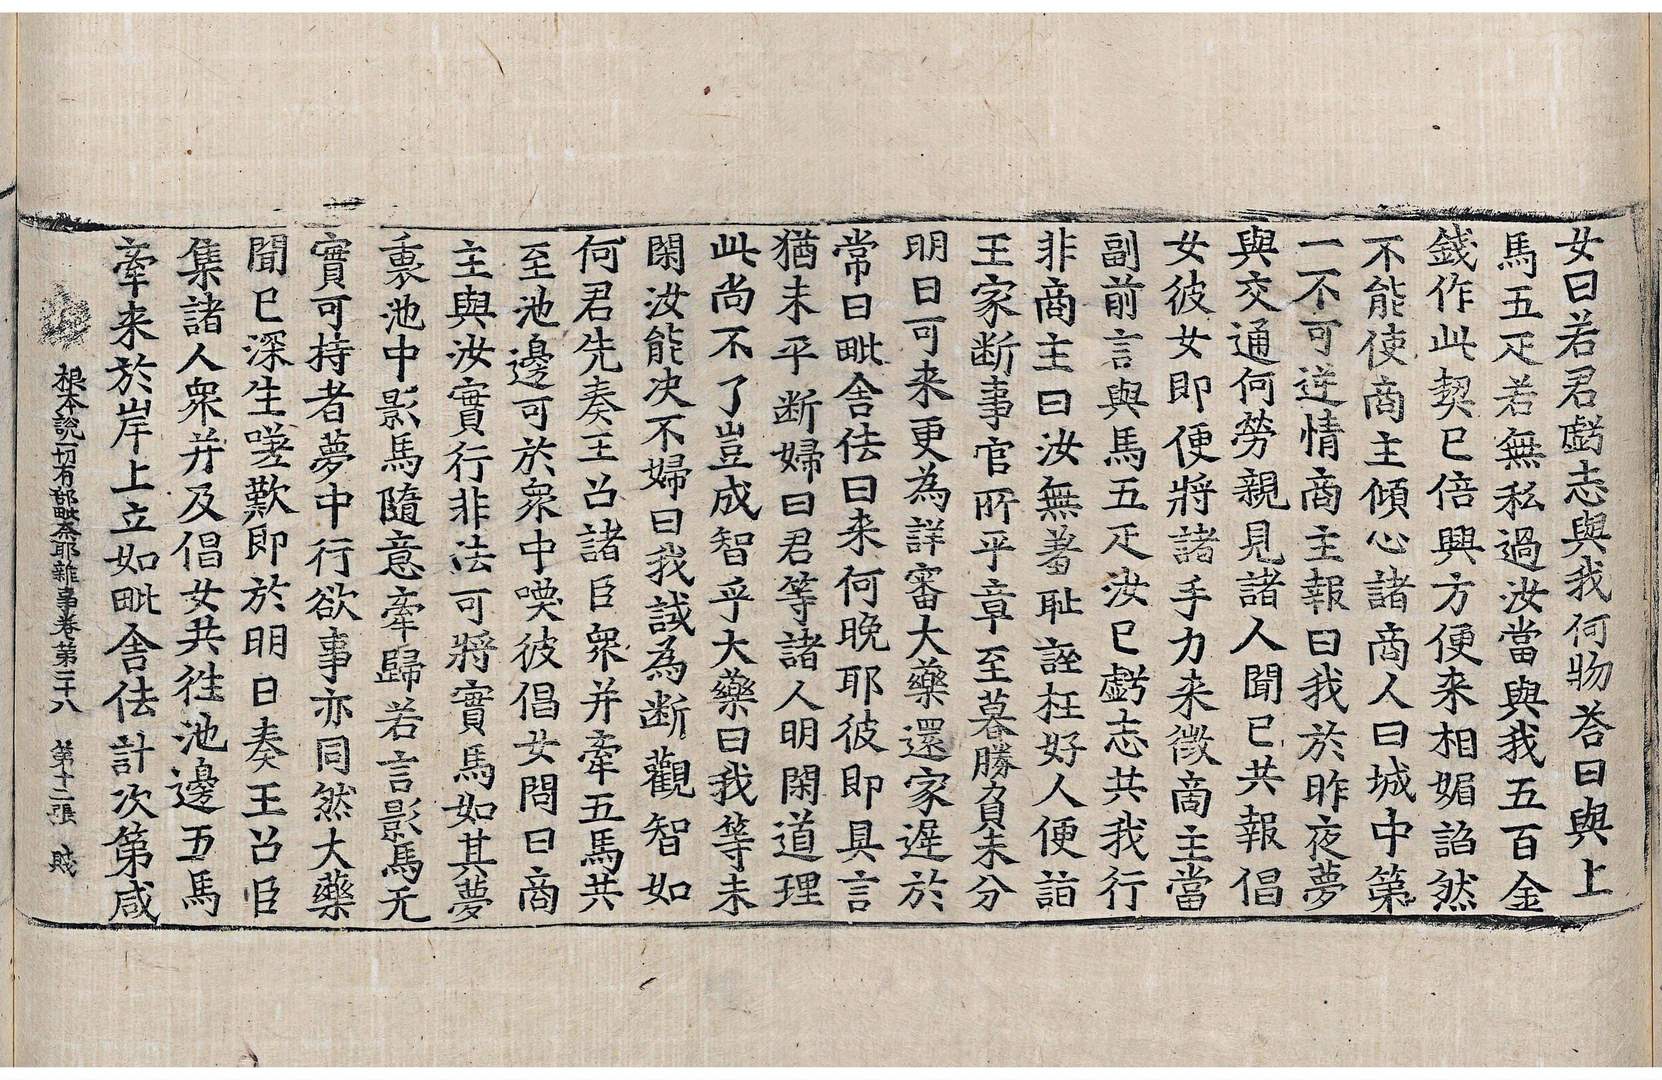 女曰若君虧志與我何物荅曰與上
馬五疋若無私過汝當與我五百金
錢作此契已倍興方便來相媚諂然
不能使商主傾心諸商人曰城中第
一不可逆情商主報曰我於昨夜夢
與交通何勞親見諸人聞已共報倡
女彼女即便將諸手力来徴啇主當
副前言與馬五疋汝已虧志共我行
非商主曰汝無羞耻誣枉好人便詣
王家断事官所平章至暮勝負未分
明日可来更為詳審大藥還家遅於
常日毗舍佉曰来何晚耶彼即具言
猶未平断婦曰君等諸人明閑道理
此尚不了豈成智乎大藥曰我等未
閑汝能决不婦曰我試為断觀智如
何君先奏王召諸臣衆并牽五馬共
至池邊可於衆中喚彼倡女問曰商
主與汝實行非法可將實馬如其夢
裏池中影馬隨意牽歸若言影馬无
實可持者夢中行欲事亦同然大藥
聞已深生嗟歎即於明日奏王召臣
集諸人衆并及倡女共往池邊五馬
牽来於岸上立如毗舍佉計次第咸
根本說一切有部毗奈耶雜事卷第二十八　第十二張　賤